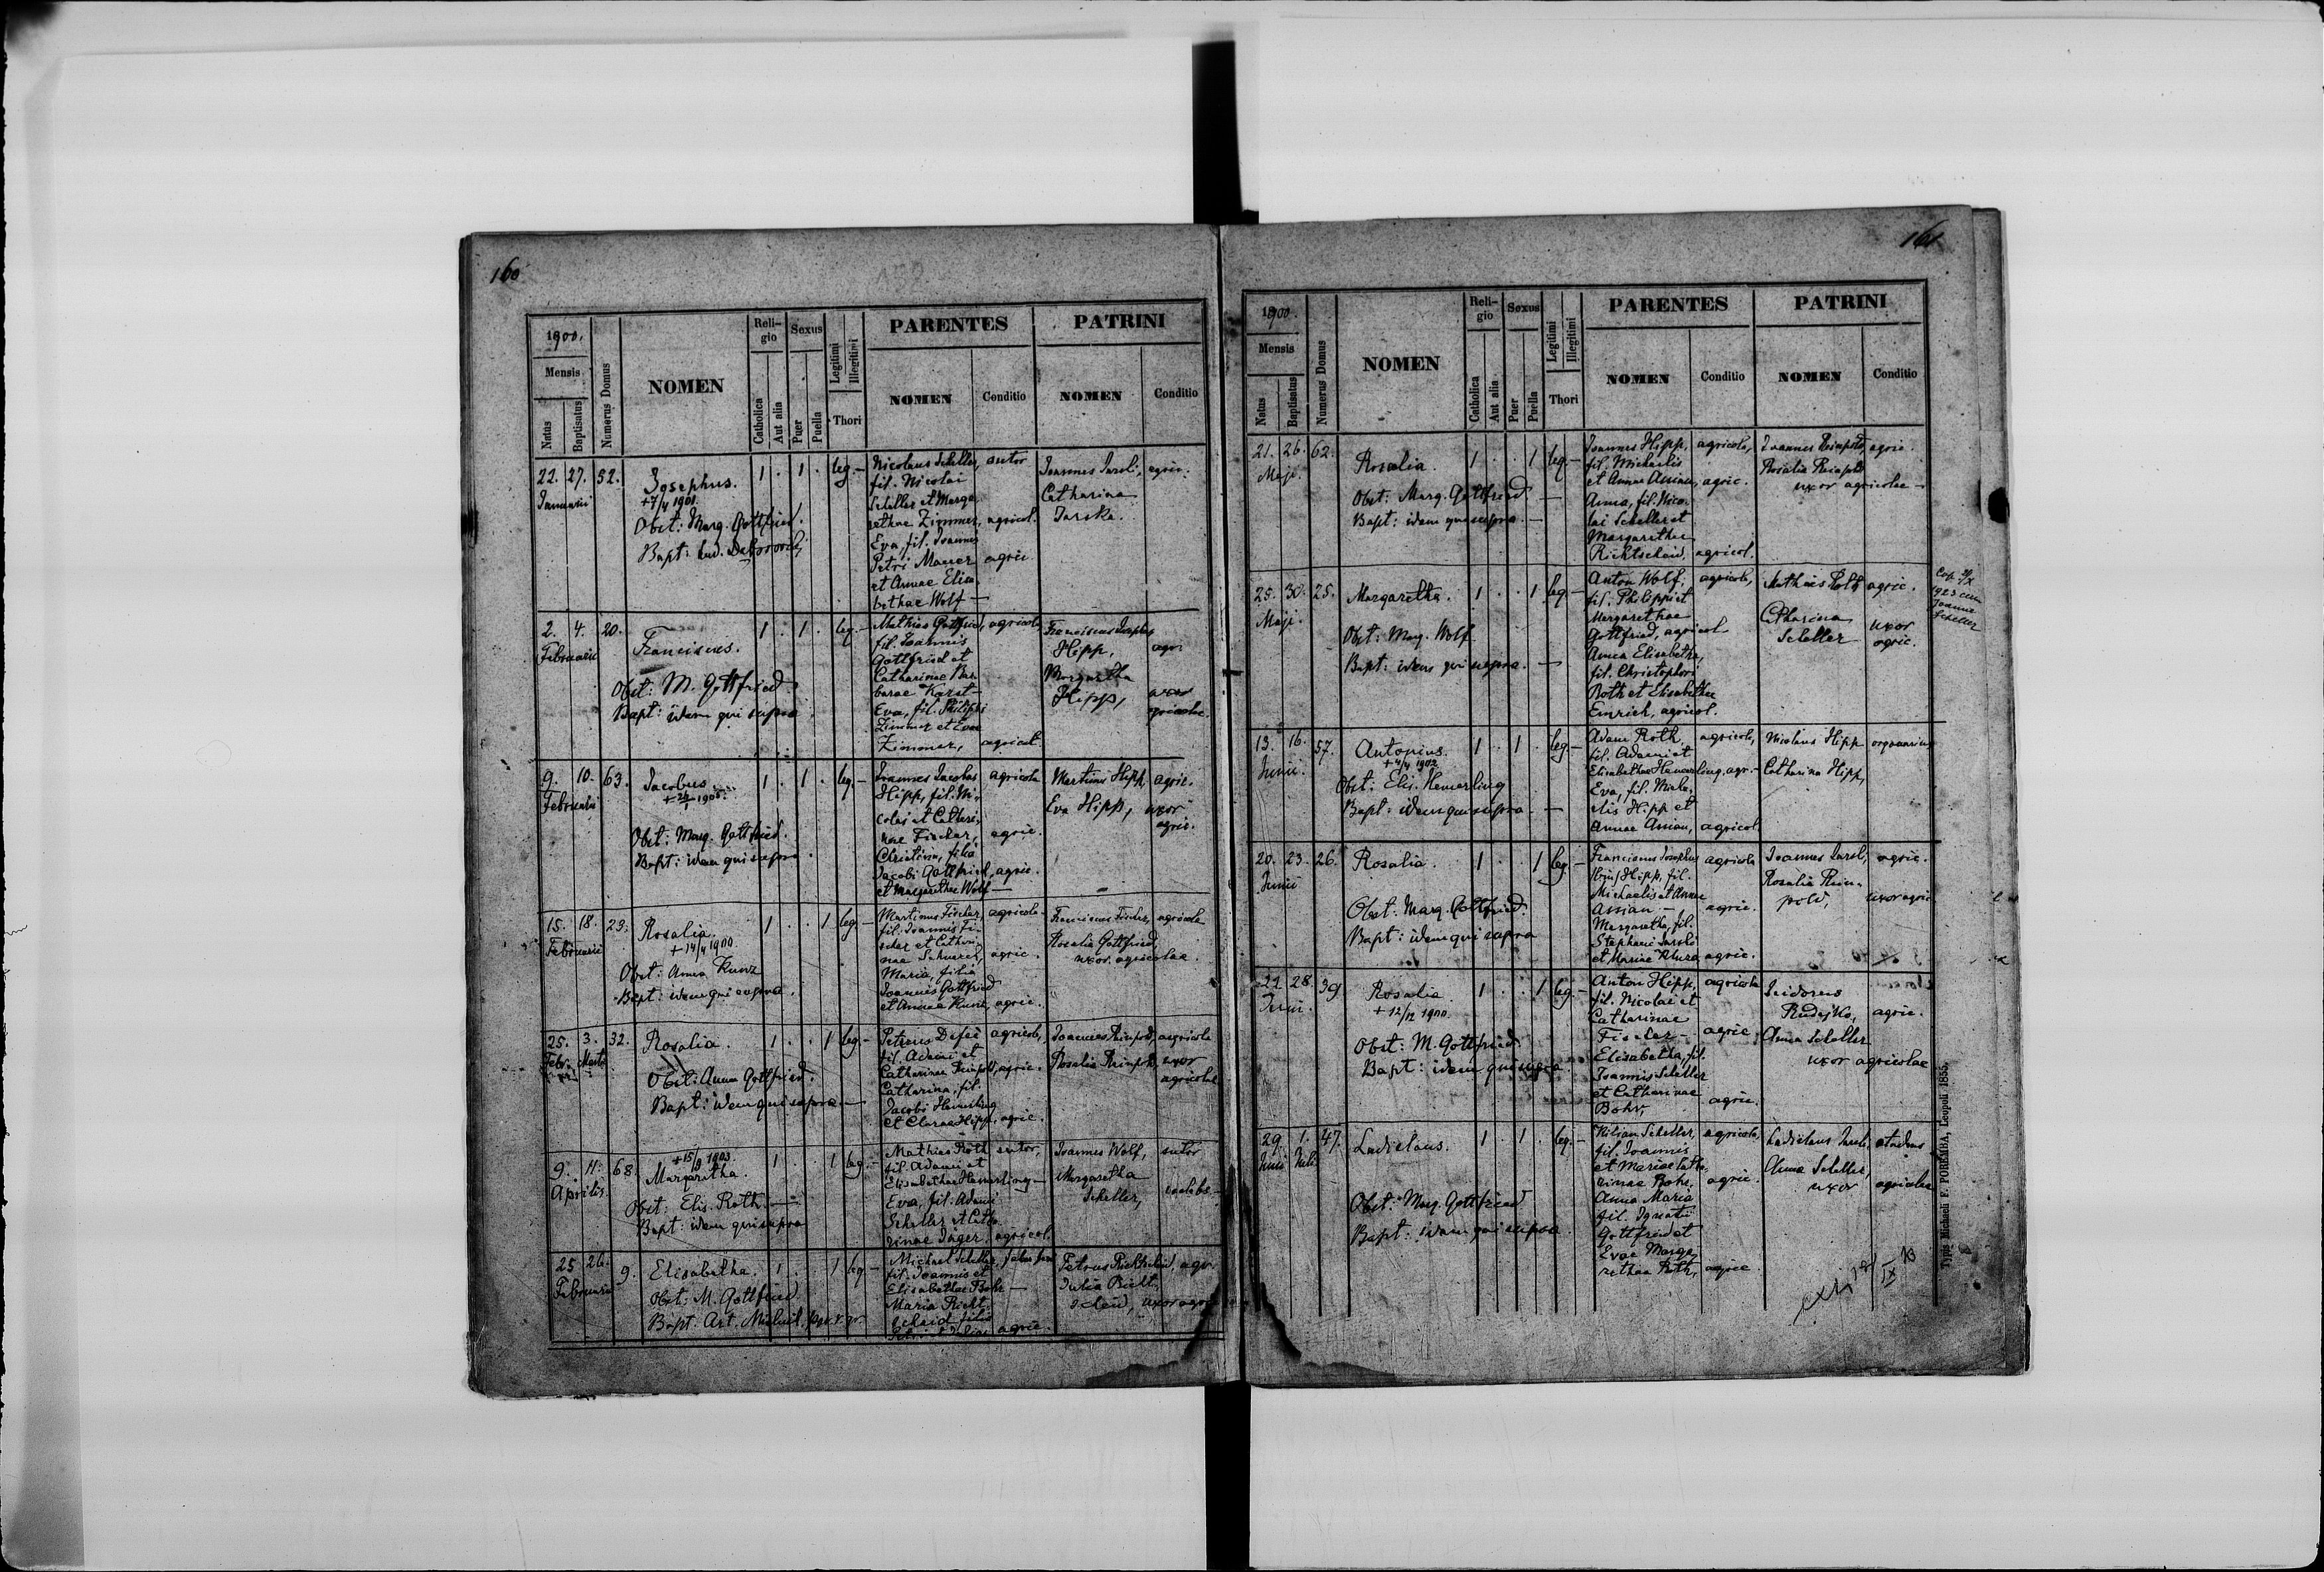 160
1900.
Mensis
Natus
Baptisatus
Numerus Domus
NOMEN
Reli-
gio
Catholica
Aut alia
Sexus
Puer
Puella
Legitimi
Illegitimi
Thori
PARENTES
NOMEN
Conditio
PATRINI
NOMEN
Conditio
22. 27. 52. Josephus. 1 . 1 . leg. -
Januarii
Obst: Marg. Gottfried.
Nicolaus Scheller, sutor
fil. Nicolai
Scheller et Marga
rethae Zimmer, agricol.
Eva, fil. Joannes
Petri Mauer agric
et Annae Elisa
bethae Wolf —
Joannes Jarski, agric.
Catharina
Jarska.
2. 4. 20. Franciscus. 1 . 1 . leg. -
Februarii
Obst: M. Gottfried
Bapt: idem qui supra
Mathias Gottfried, agricola
fil. Joannis
Gottfried et
Catharinae Bar
barae Karst —
Eva, fil. Philippi
Zimmer et Evae
Zimmer, agricol.
Franciscus Josephus
Hipp, agr.
Margaretha
Hipp, uxor
agricolae.
9. 10. 63. Jacobus 1 . 1 . leg -
Februarii
Obst: Marg. Gottfried.
Bapt: idem qui supra
Joannes Jacobus agricola
Hipp, fil. Ni-
colai et Cathari-
nae Fischer, agric.
Christina, filia
Jacobi Gottfried, agric.
et Margarethae Wolf —
Martinus Hipp, agric.
Eva Hipp, uxor
agric.
15. 18. 23. Rosalia. 1 . . 1 leg -
Februarii + 14/4 1900
Obst: Anna Kunz
Bapt: idem qui supra.
Martinus Fischer, agricola
fil. Joannis Fi-
scher et Cathari
nae agric.
Maria, filia
Joannis Gottfried
et Annae Kunz, agric.
Franciscus Fischer, agricola
Rosalia Gottfried,
uxor agricolae.
25. 3. 32. Rosalia. 1 . . 1 leg -
Febr. Martii
Obst: Anna Gottfried.
Bapt: idem qui supra —
Petrus agricola,
fil. Adami et
Catharinae agric.
Catharina, fil.
Jacobi Hemerling
et Clarae Hipp, agric.
Joannes agricola
Rosalia uxor
agricolae
+ 15/9 1903.
9. 11. 68. Margaretha 1 . . 1 leg. -
Aprilis
Obst: Elis. Roth. —
Bapt: idem qui supra
Mathias Roth sutor,
fil. Adami et
Elisabethae Hemerling —
Eva, fil. Adami
Scheller et Catha
rinae Jager, agricol.
Joannes Wolf, sutor
Margaretha
Scheller,
25 26. 9. Elisabetha. 1 . 1 leg -
Februarii
Obst: M. Gottfried
Michael Scheller,
fil. Joannis et
Elisabethae Bohr —
Maria Richt
scheid filia
agric.
Petrus Richtscheid, agr.
Julia Richt
scheid, uxor agr
161
1900.
Mensis
Natus
Baptisatus
Numerus Domus
NOMEN
Reli-
gio
Catholica
Aut alia
Sexus
Puer
Puella
Legitimi
Illegitimi
Thori
PARENTES
NOMEN
Conditio
PATRINI
NOMEN
Conditio
21. 26. 62. Rosalia. 1 . . 1 leg. -
Maji.
Obst: Marg. Gottfried —
Bapt: idem qui supra. —
Joannes Hipp, agricola,
fil. Michaelis
et Annae Assian, agric.
Anna, fil. Nico
lai Scheller et
Margarethae
Richtscheid, agricol.
Joannes agric.
Rosalia
uxor agricolae —
25. 30. 25. Margaretha. 1 . . 1 leg. -
Maji.
Obst: Marg. Wolf
Bapt: idem qui supra. —
Anton Wolf, agricola,
fil. Philippi et
Margarethae
Gottfried, agricol
Anna Elisabetha,
fil. Christophori
Roth et Elisabethae
Emrich, agricol.
Mathias Roth agric.
Catharina uxor
Scheller agric.
1923 cum
Joanne
Scheller
13. 16. 57. Antonius. 1 . 1 . leg -
Junii. + 4/4 1902
Obst: Elis. Hemerling
Bapt: idem qui supra. —
Adam Roth, agricola,
fil. Adami et
Elisabethae Hemerling, agr. -
Eva, fil. Micha-
elis Hipp et
Annae Assian, agricol.
Nicolaus Hipp
Catharina Hipp,
20. 23. 26. Rosalia. 1 . . 1 leg -
Junii
Obst: Marg. Gottfried.
Bapt: idem qui supra
Franciscus Josephus agricola
Hipp, fil.
Michaelis et Annae
Assian — agric.
Margaretha, fil.
Stephani Jarski
et Mariae agric.
Joannes Jarski, agric.
Rosalia Rein-
pold, uxor agric
22. 28. 39 Rosalia 1 . . 1 leg. -
Junii. + 12/12 1900.
Obst: M. Gottfried
Bapt: idem qui supra
Anton Hipp, agricola
fil. Nicolai et
Catharinae
Fischer — agric.
Elisabetha, fil.
Joannis Scheller
et Catharinae
Bohr, agric.
Isidorus
Rudejko, agric.
Anna Scheller
uxor agricolae
29. 1. 47. Ladislaus. 1 . 1 . leg. -
Junii Julii
Obst: Marg. Gottfried
Bapt: idem qui supra
Kilian Scheller, agricola,
fil. Joannis
et Mariae Catha
rinae Bohr, agric.
Anna Maria
fil. Ignatii
Gottfried et
Evae Marga
rethae Roth, agric.
Ladislaus Jarski,
Anna Scheller,
uxor agricolae
Typis Michaeli F. POREMBA, Leopoli 1855.